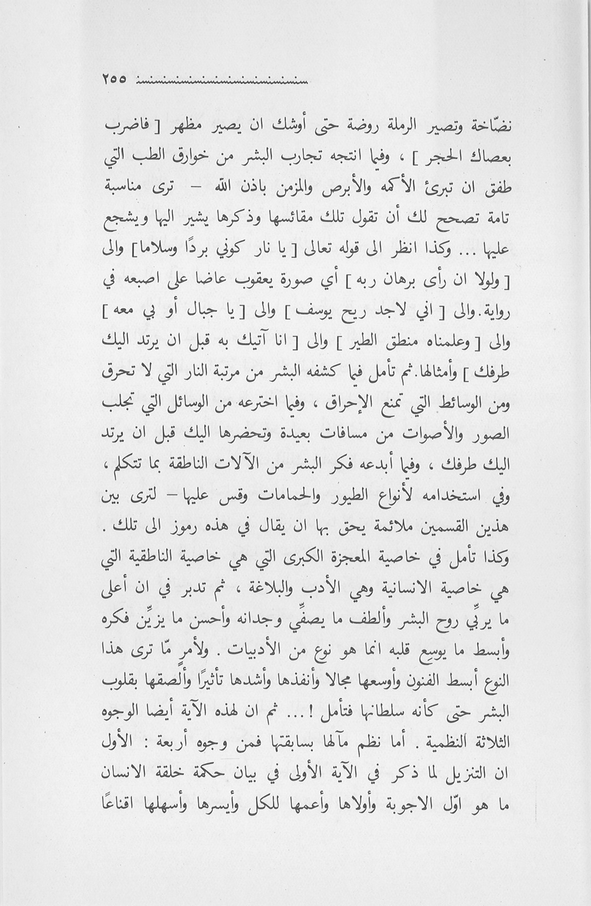 ٢٥٥
نضّاخة وتصير الرملة روضة حتى أوشك ان يصير مظهر [ فاضرب
بعصاك الحجر ] ، وفيا انتجه تجارب البشر من خوارق الطب التي
طفق ان تبرئ الأكمه والأبرص والمزمن باذن الله – ترى مناسبة
تامة تصحح لك أن تقول تلك مقائسها وذكرها يشير اليها ويشجع
عليها ... وكذا انظر الى قوله تعالى [ يا نار كوني بردًا وسلاما] والى
[ ولولا ان رأى برهان ربه ] أي صورة يعقوب عاضا على اصبعه في
رواية.والى [ اني لاجد ريح يوسف ] والى [ يا جبال أو بي معه ]
والى [ وعلمناه منطق الطير ] والى [ انا آتيك به قبل ان يرتد اليك
طرفك ] وأمثالها.ثم تأمل فيا كشفه البشر من مرتبة النار التي لا تحرق
ومن الوسائط التي تمنع الإحراق ، وفيا اخترعه من الوسائل التي تجلب
الصور والأصوات من مسافات بعيدة وتحضرها اليك قبل ان يرتد
اليك طرفك ، وفيا أبدعه فكر البشر من الآلات الناطقة بما تتكلم ،
وفي استخدامه لأنواع الطيور والحمامات وقس عليها – لترى بين
هذين القسمين ملائمة يحق بها ان يقال في هذه رموز الى تلك .
وكذا تأمل في خاصية المعجزة الكبرى التي هي خاصية الناطقية التي
هي خاصية الانسانية وهي الأدب والبلاغة ، ثم تدبر في ان أعلى
ما يربّي روح البشر وألطف ما يصفِّي وجدانه وأحسن ما يزيِّن فكره
وأبسط ما يوسِع قلبه انما هو نوع من الأدبيات . ولأمرٍ مّا ترى هذا
النوع أبسط الفنون وأوسعها مجالا وأنفذها وأشدها تأثيرًا وألصقها بقلوب
البشر حتى كأنه سلطانها فتأمل !... ثم ان لهذه الآية أيضا الوجوه
الثلاثة النظمية . أما نظم مآلها بسابقتها فمن وجوه أربعة : الأول
ان التنزيل لما ذكر في الآية الأولى في بيان حكمة خلقة الانسان
ما هو اوّل الاجوبة وأولاها وأعمها للكل وأيسرها وأسهلها اقناعًا